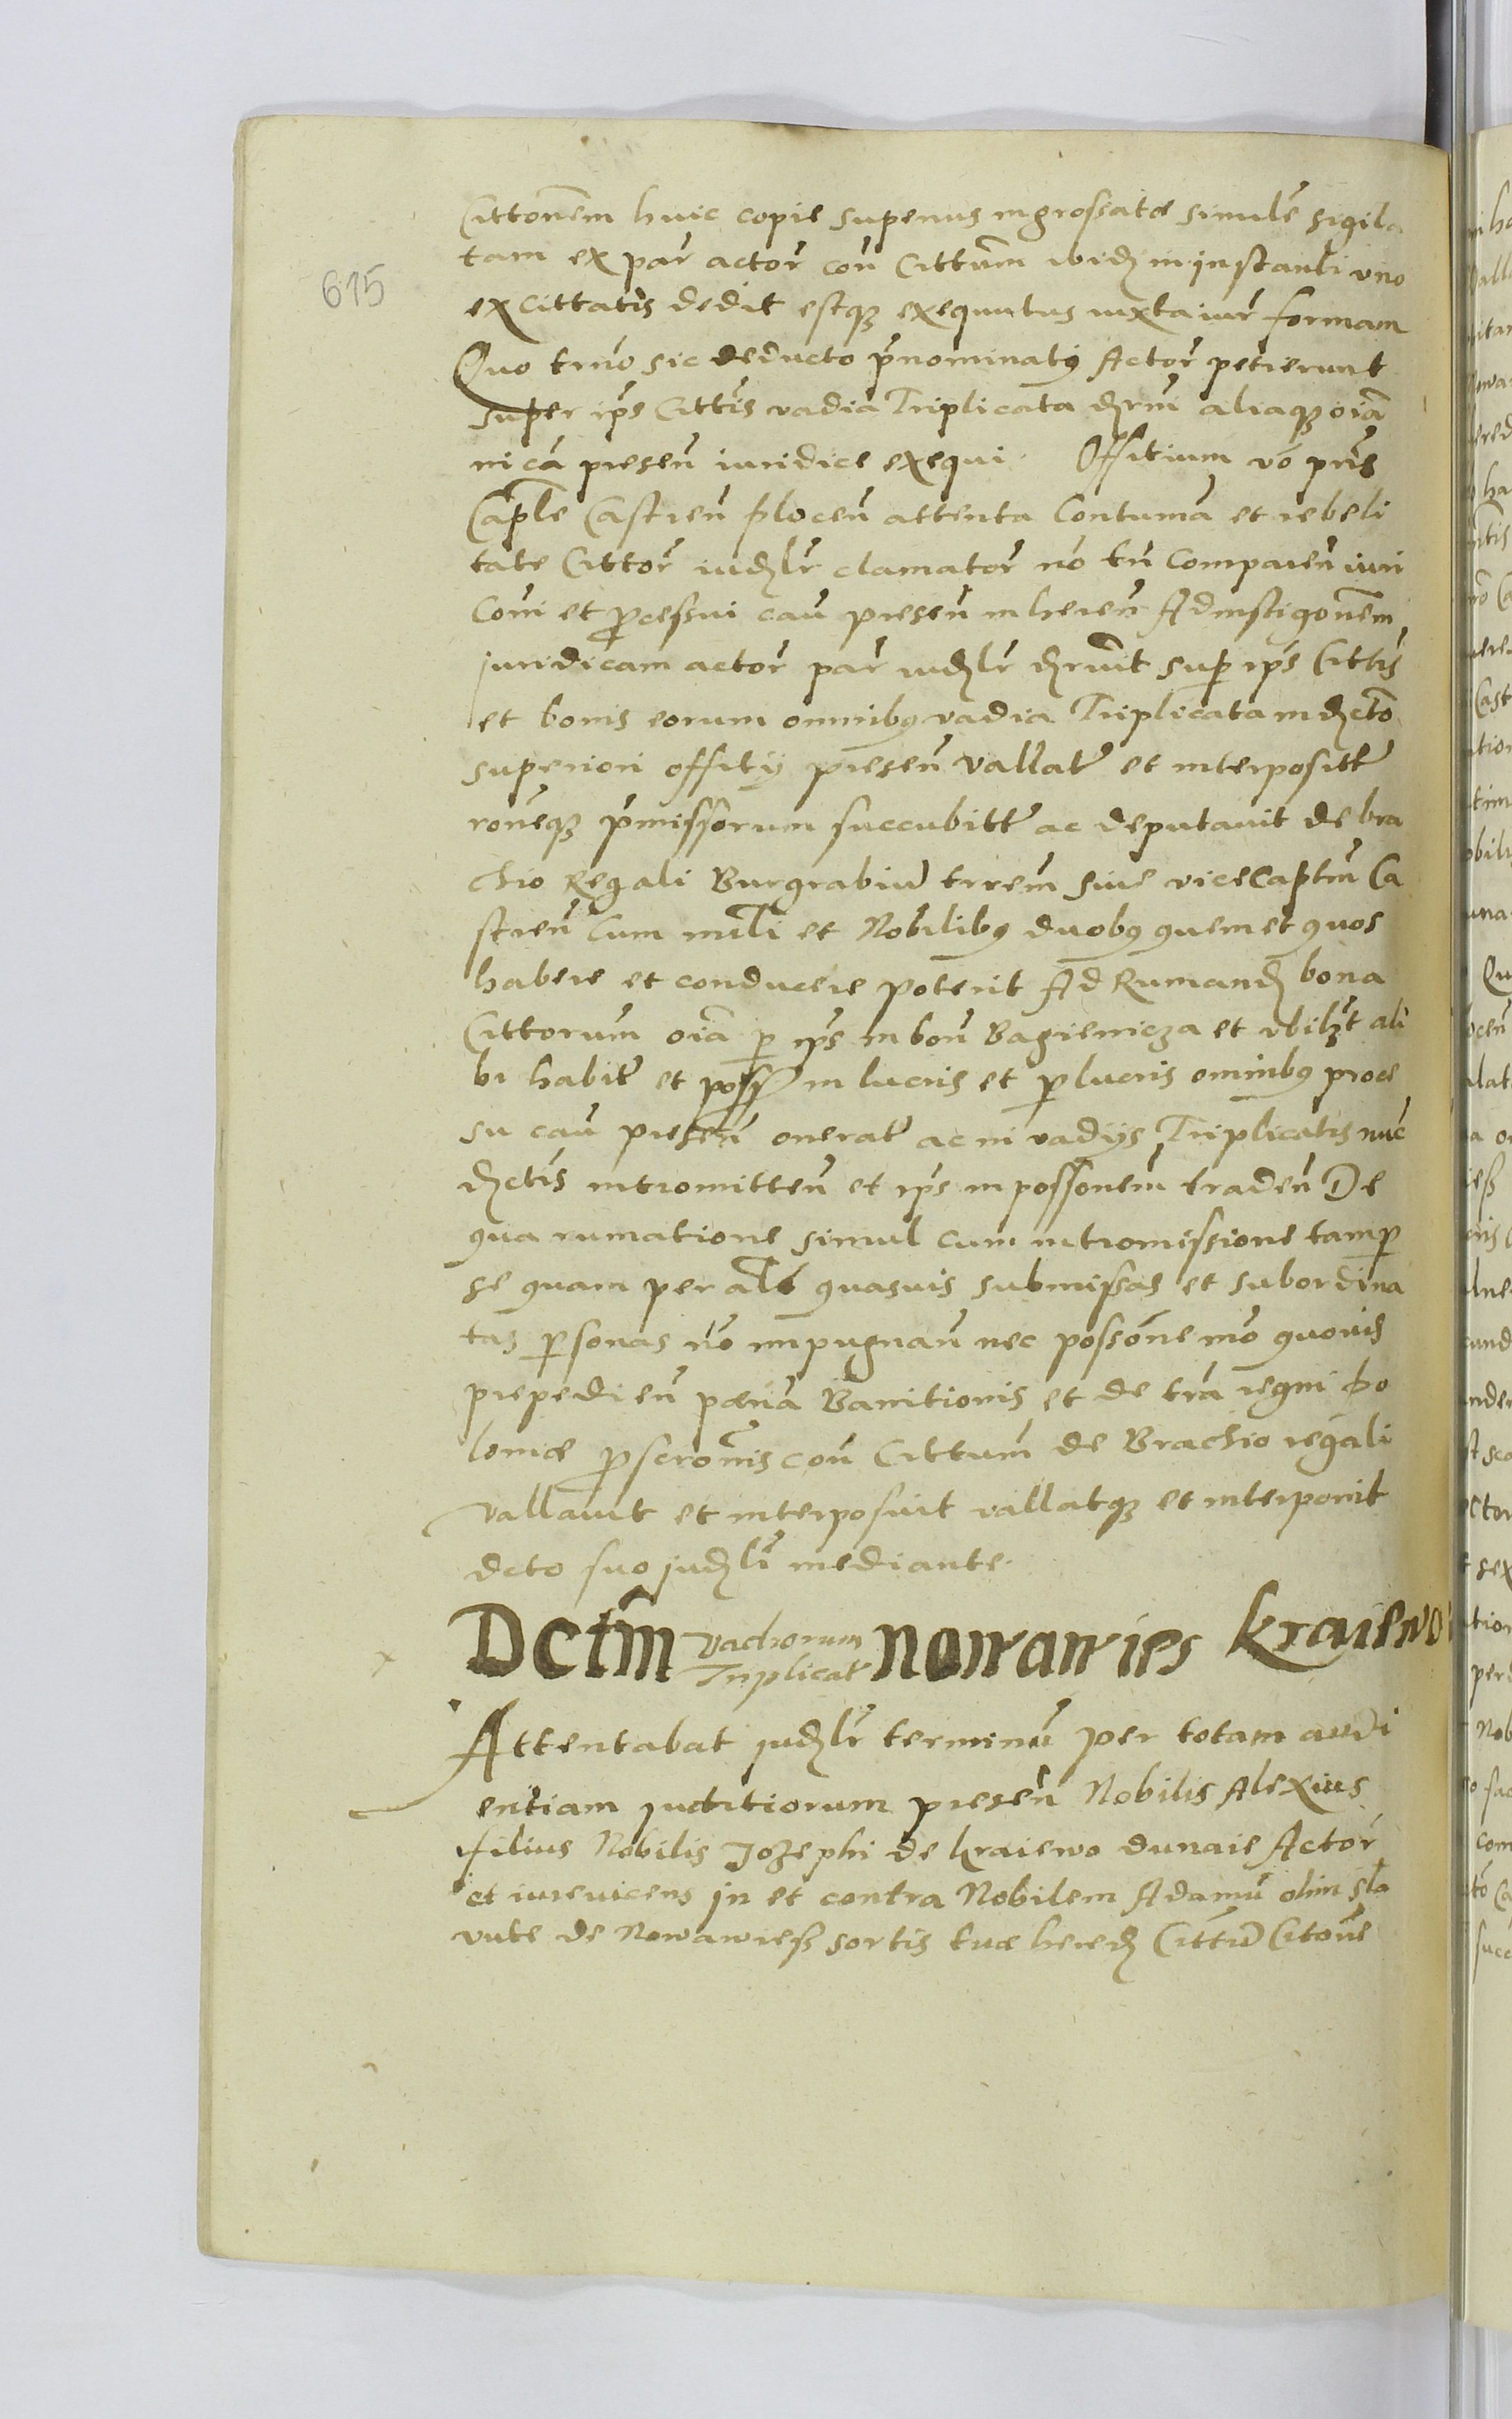 615
Cittonem huic copie supenus ingrossatæ simule sigila
tam ex par actor con Cittum ibidz in instanti uno
ex cittatis dedit estqz exequutus iuxta iur formam
Quo trno sic deducto pnominatg Actor petierunt
super ips Cittis vadia Triplicata dzrni aliaqz oia
in ca presen iuridice exequi. Offitium vo pns
Caple Castren plocen attenta Contuma et rebeli
tate Cittor iudzlr clamator no tn Comparen iuri
Coni et pcessui cau presen inheren Ad instigonem
juridicam actor par iudzlr dzruit sup ips Cittis
et bonis eorum omnibg vadia Triplicata in dzcto
superiori offitij presen vallat et interposit
roneqz pmissorum succubitt ac deputavit de bra
chio Regali Burgrabiu trrem sive viceCaptm Ca
stren Cum mili et Nobilibg duobg quem et quos
habere et conducere poterit Ad Rumandz bona
Cittorum oia p ips in bon Bagienicza et ubilzt ali
bi habit et possz in lucris et plucris omnibg proce
su cau presen onerat ac in vadijs Triplicatis nuc
dzctis intromitten et ips in possonem traden De
qua rumatione simul cum intromissione tam p
se quam per ale quasvis submissas et subordina
tas psonas no impugnan nec possone mo quovis
prepedien pæna Banitionis et de tra regni Po
loniæ pscronis con Cittum de Brachio regali
vallavit et interposuit vallatqz et interponit
dcto suo judzli mediante.
Dctm vadiorum Triplicat nowawies kraiewo
Attentabat judzlr terminu per totam audi
entiam juditiorum presen Nobilis Alexius
filius Nobilis Jozephi de kraiewo dunaie Actor
et iurevicens in et contra Nobilem Adamu olim sla
vute de Nowawiess sortis tuæ heredz Cittu Citone